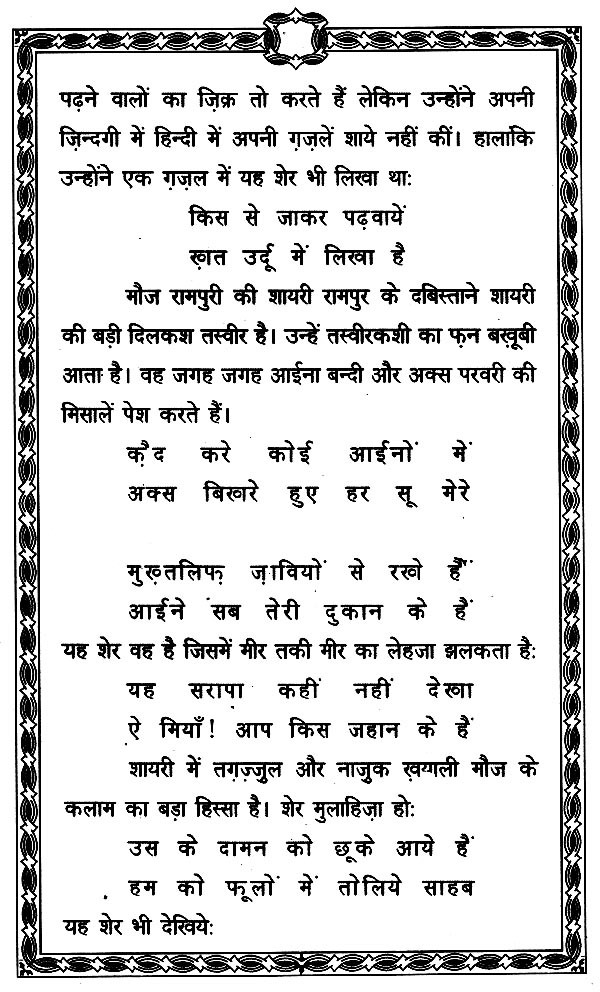 पढ़ने वालों का ज़िक्र तो करते हैं लेकिन उन्होंने अपनी
ज़िन्दगी में हिन्दी में अपनी ग़ज़लें शाये नहीं कीं। हालांकि
उन्होंने एक ग़ज़ल में यह शेर भी लिखा थाः
किस से जाकर पढ़वायें
ख़त उर्दू में लिखा है
मौज रामपुरी की शायरी रामपुर के दबिस्ताने शायरी
की बड़ी दिलकश तस्वीर है। उन्हें तस्वीरकशी का फ़न बख़ूबी
आता है। वह जगह जगह आईना बन्दी और अक्स परवरी की
मिसालें पेश करते हैं।
क़ैद करे कोई आईनों में
अक्स बिखरे हुए हर सू मेरे
मुख़्तलिफ़ ज़ावियों से रखे हैं
आईने सब तेरी दुकान के हैं
यह शेर वह है जिसमें मीर तकी मीर का लेहजा झलकता हैः
यह सरापा कहीं नहीं देखा
ऐ मियाँ! आप किस जहान के हैं
शायरी में तग़ज़्ज़ुल और नाजुक ख़्याली मौज के
कलाम का बड़ा हिस्सा है। शेर मुलाहिज़ा होः
उस के दामन को छूके आये हैं
हम को फूलों में तोलिये साहब
यह शेर भी देखियेः